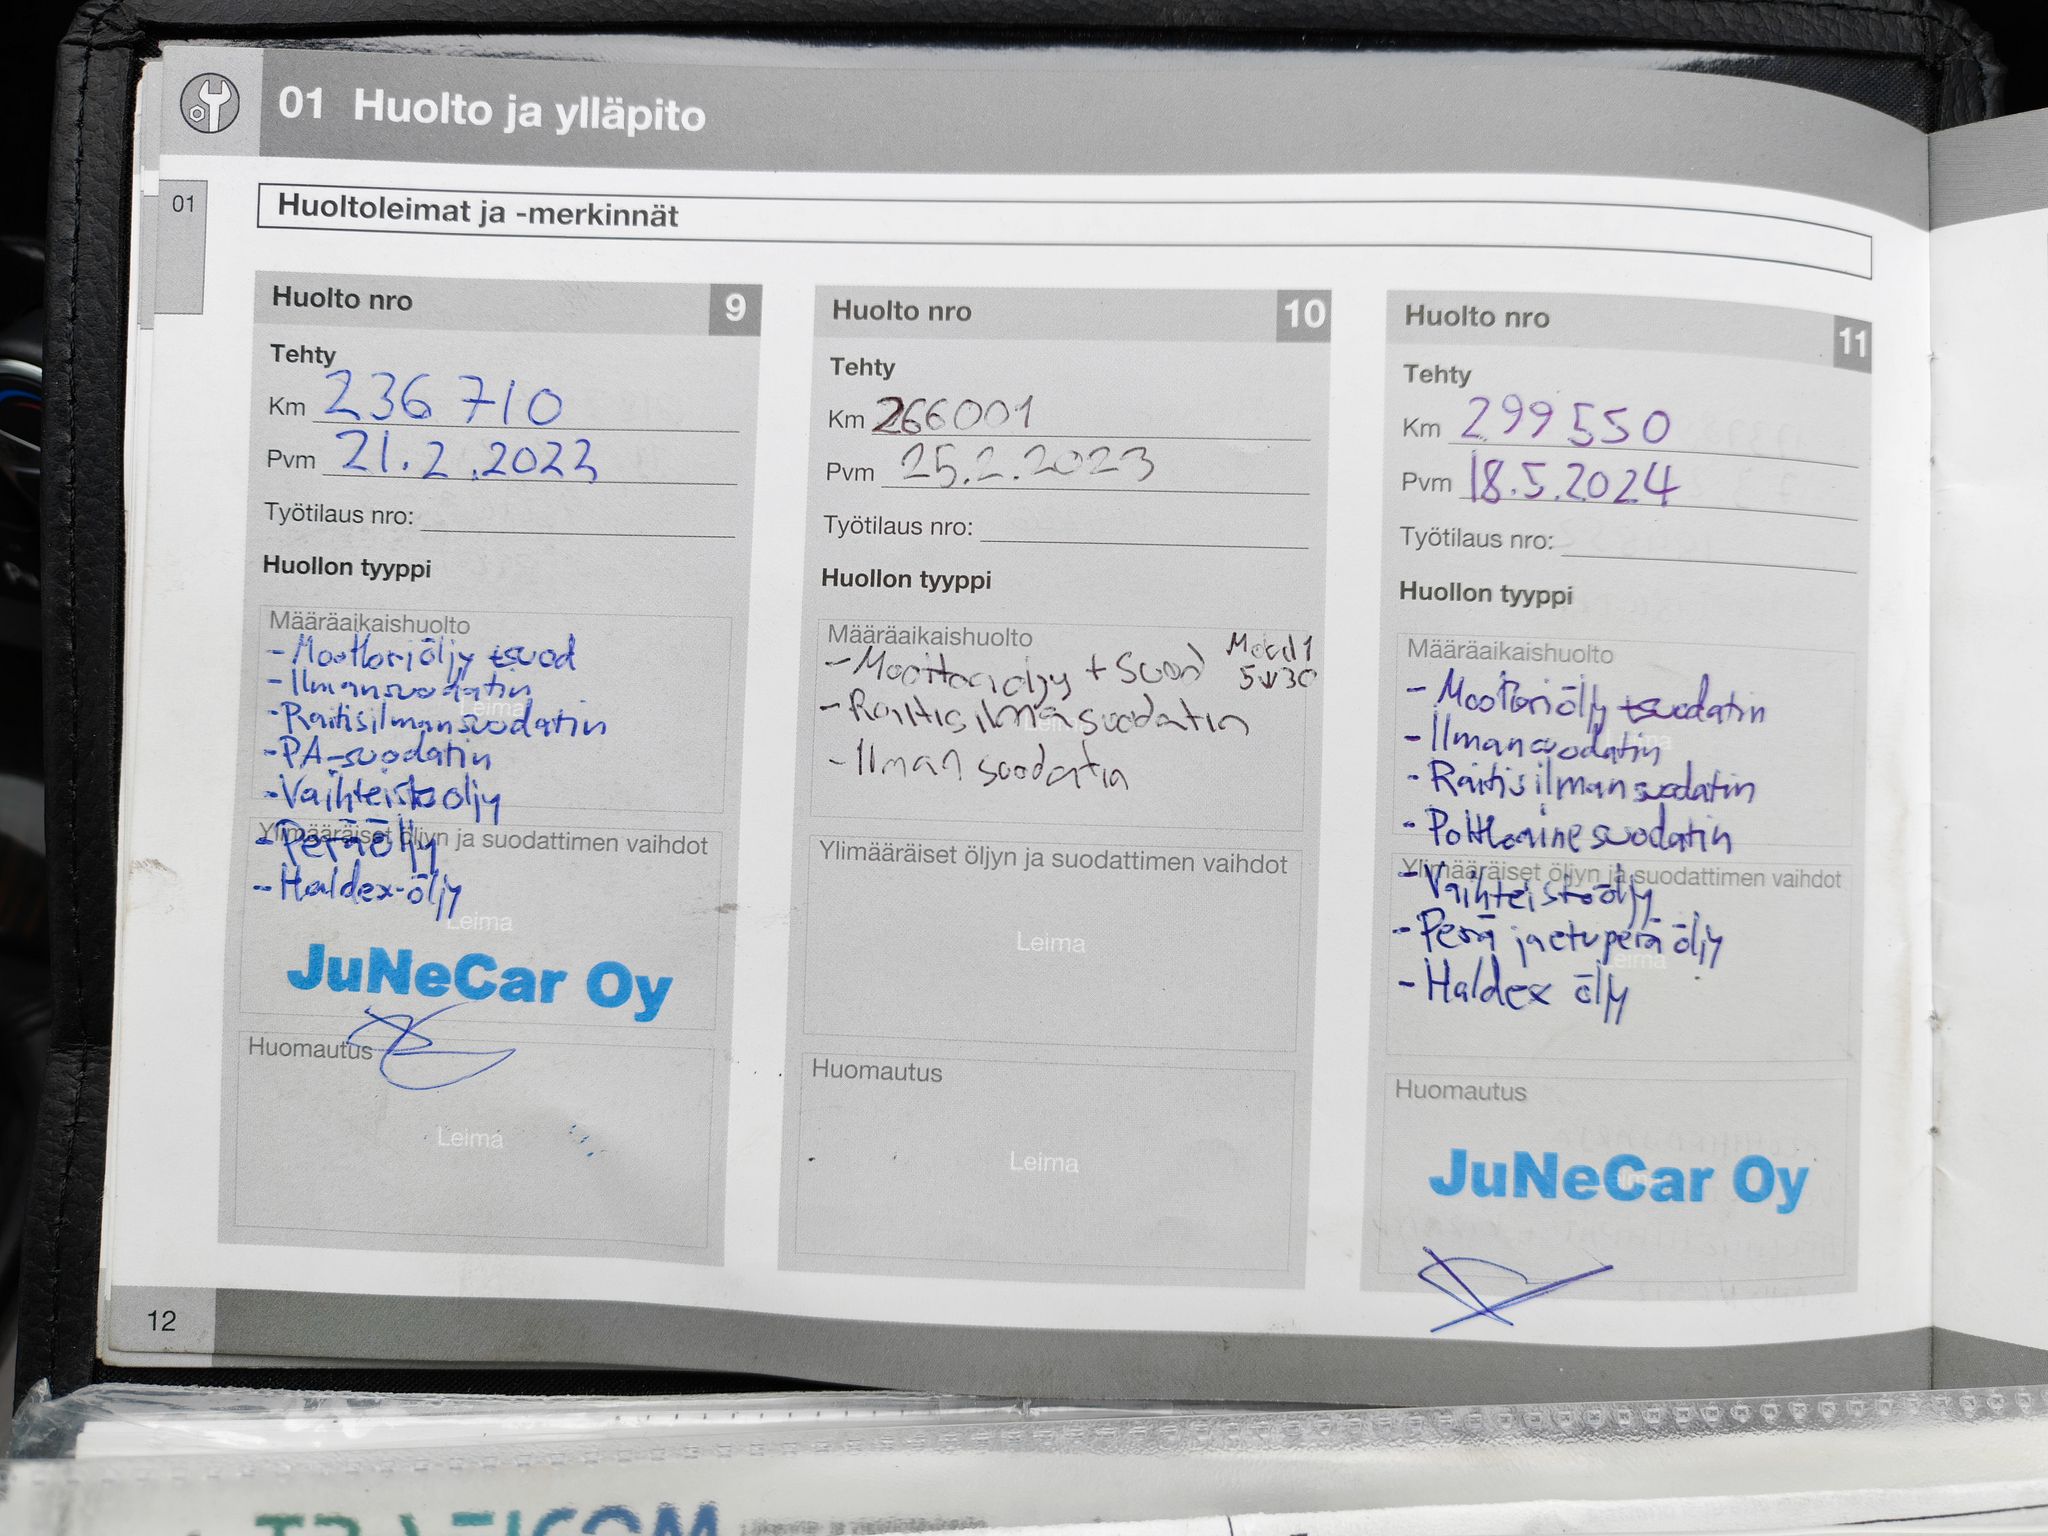 01 Huolto ja ylläpito
01
Huoltoleimat ja -merkinnät
Huolto nro 9
Tehty
Km 236 710
Pvm 21.2.2023
Työtilaus nro:
Huollon tyyppi
Määräaikaishuolto
- Moottoriöljy +suod
- Ilmansuodatin
- Raitisilmansuodatin
- PA-suodatin
- Vaihteistoöljy
Ylimääräiset öljyn ja suodattimen vaihdot
- Peräöljy
- Haldex-öljy
Leima
JuNeCar Oy
Huomautus
Leima
Huolto nro 10
Tehty
Km 266001
Pvm 25.2.2023
Työtilaus nro:
Huollon tyyppi
Määräaikaishuolto
- Moottoriöljy + suod Mobil1
5w30
- Raitisilmasuodatin
- Ilman suodatin
Ylimääräiset öljyn ja suodattimen vaihdot
Leima
Huomautus
Leima
Huolto nro 11
Tehty
Km 299 550
Pvm 18.5.2024
Työtilaus nro:
Huollon tyyppi
Määräaikaishuolto
- Moottoriöljy +suodatin
- Ilmansuodatin
- Raitisilmansuodatin
- Polttoainesuodatin
Ylimääräiset öljyn ja suodattimen vaihdot
- Vaihteistoöljy
- Perä ja etuperä öljy
Leima
- Haldex öljy
Huomautus
JuNeCar Oy
12